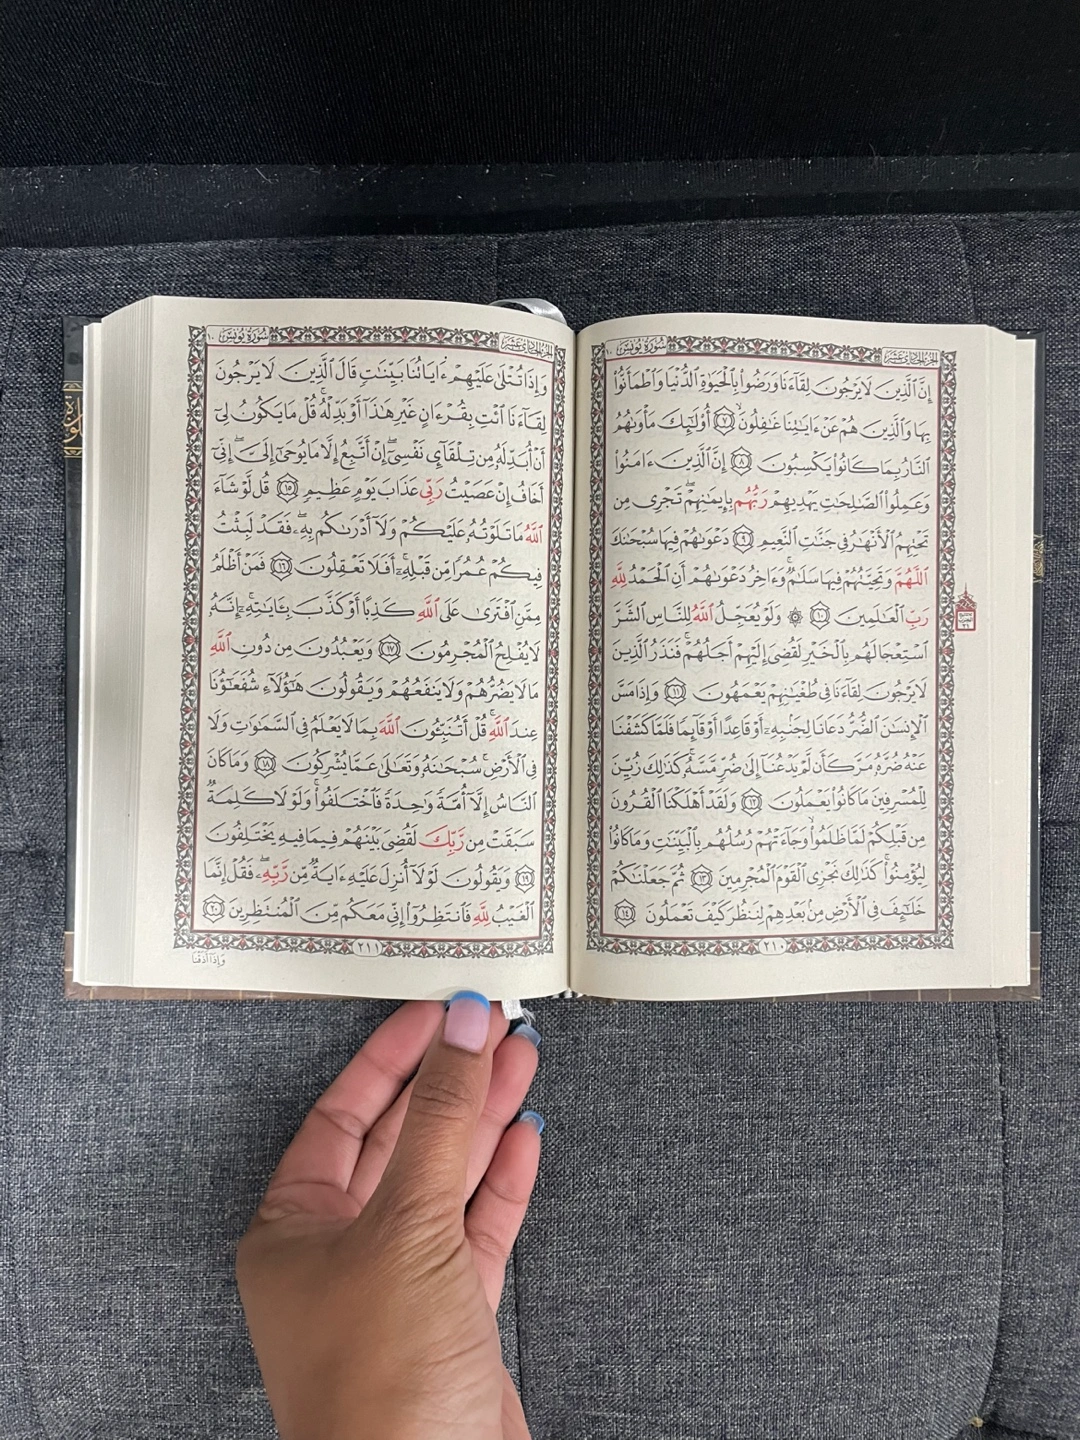 الجزء الحادي عشر
سورة يونس
١٠
إِنَّ ٱلَّذِينَ لَا يَرْجُونَ لِقَآءَنَا وَرَضُوا۟ بِٱلْحَيَوٰةِ ٱلدُّنْيَا وَٱطْمَأَنُّوا۟
بِهَا وَٱلَّذِينَ هُمْ عَنْ ءَايَـٰتِنَا غَـٰفِلُونَ ٧ أُو۟لَـٰٓئِكَ مَأْوَىٰهُمُ
ٱلنَّارُ بِمَا كَانُوا۟ يَكْسِبُونَ ٨ إِنَّ ٱلَّذِينَ ءَامَنُوا۟
وَعَمِلُوا۟ ٱلصَّـٰلِحَـٰتِ يَهْدِيهِمْ رَبُّهُم بِإِيمَـٰنِهِمْ ۖ تَجْرِى مِن
تَحْتِهِمُ ٱلْأَنْهَـٰرُ فِى جَنَّـٰتِ ٱلنَّعِيمِ ٩ دَعْوَىٰهُمْ فِيهَا سُبْحَـٰنَكَ
ٱللَّهُمَّ وَتَحِيَّتُهُمْ فِيهَا سَلَـٰمٌ ۚ وَءَاخِرُ دَعْوَىٰهُمْ أَنِ ٱلْحَمْدُ لِلَّهِ
رَبِّ ٱلْعَـٰلَمِينَ ١٠ ۞ وَلَوْ يُعَجِّلُ ٱللَّهُ لِلنَّاسِ ٱلشَّرَّ
ٱسْتِعْجَالَهُم بِٱلْخَيْرِ لَقُضِىَ إِلَيْهِمْ أَجَلُهُمْ ۖ فَنَذَرُ ٱلَّذِينَ
لَا يَرْجُونَ لِقَآءَنَا فِى طُغْيَـٰنِهِمْ يَعْمَهُونَ ١١ وَإِذَا مَسَّ
ٱلْإِنسَـٰنَ ٱلضُّرُّ دَعَانَا لِجَنۢبِهِۦٓ أَوْ قَاعِدًا أَوْ قَآئِمًا فَلَمَّا كَشَفْنَا
عَنْهُ ضُرَّهُۥ مَرَّ كَأَن لَّمْ يَدْعُنَآ إِلَىٰ ضُرٍّ مَّسَّهُۥ ۚ كَذَٰلِكَ زُيِّنَ
لِلْمُسْرِفِينَ مَا كَانُوا۟ يَعْمَلُونَ ١٢ وَلَقَدْ أَهْلَكْنَا ٱلْقُرُونَ
مِن قَبْلِكُمْ لَمَّا ظَلَمُوا۟ ۙ وَجَآءَتْهُمْ رُسُلُهُم بِٱلْبَيِّنَـٰتِ وَمَا كَانُوا۟
لِيُؤْمِنُوا۟ ۚ كَذَٰلِكَ نَجْزِى ٱلْقَوْمَ ٱلْمُجْرِمِينَ ١٣ ثُمَّ جَعَلْنَـٰكُمْ
خَلَـٰٓئِفَ فِى ٱلْأَرْضِ مِنۢ بَعْدِهِمْ لِنَنظُرَ كَيْفَ تَعْمَلُونَ ١٤
٢١٠
الجزء الحادي عشر
سورة يونس
١٠
وَإِذَا تُتْلَىٰ عَلَيْهِمْ ءَايَاتُنَا بَيِّنَـٰتٍ ۙ قَالَ ٱلَّذِينَ لَا يَرْجُونَ
لِقَآءَنَا ٱئْتِ بِقُرْءَانٍ غَيْرِ هَـٰذَآ أَوْ بَدِّلْهُ ۚ قُلْ مَا يَكُونُ لِىٓ
أَنْ أُبَدِّلَهُۥ مِن تِلْقَآئِ نَفْسِىٓ ۖ إِنْ أَتَّبِعُ إِلَّا مَا يُوحَىٰٓ إِلَىَّ ۖ إِنِّىٓ
أَخَافُ إِنْ عَصَيْتُ رَبِّى عَذَابَ يَوْمٍ عَظِيمٍ ١٥ قُل لَّوْ شَآءَ
ٱللَّهُ مَا تَلَوْتُهُۥ عَلَيْكُمْ وَلَآ أَدْرَىٰكُم بِهِۦ ۖ فَقَدْ لَبِثْتُ
فِيكُمْ عُمُرًا مِّن قَبْلِهِۦٓ ۚ أَفَلَا تَعْقِلُونَ ١٦ فَمَنْ أَظْلَمُ
مِمَّنِ ٱفْتَرَىٰ عَلَى ٱللَّهِ كَذِبًا أَوْ كَذَّبَ بِـَٔايَـٰتِهِۦٓ ۚ إِنَّهُۥ
لَا يُفْلِحُ ٱلْمُجْرِمُونَ ١٧ وَيَعْبُدُونَ مِن دُونِ ٱللَّهِ
مَا لَا يَضُرُّهُمْ وَلَا يَنفَعُهُمْ وَيَقُولُونَ هَـٰٓؤُلَآءِ شُفَعَـٰٓؤُنَا
عِندَ ٱللَّهِ ۚ قُلْ أَتُنَبِّـُٔونَ ٱللَّهَ بِمَا لَا يَعْلَمُ فِى ٱلسَّمَـٰوَٰتِ وَلَا
فِى ٱلْأَرْضِ ۚ سُبْحَـٰنَهُۥ وَتَعَـٰلَىٰ عَمَّا يُشْرِكُونَ ١٨ وَمَا كَانَ
ٱلنَّاسُ إِلَّآ أُمَّةً وَٰحِدَةً فَٱخْتَلَفُوا۟ ۚ وَلَوْلَا كَلِمَةٌ
سَبَقَتْ مِن رَّبِّكَ لَقُضِىَ بَيْنَهُمْ فِيمَا فِيهِ يَخْتَلِفُونَ
١٩ وَيَقُولُونَ لَوْلَآ أُنزِلَ عَلَيْهِ ءَايَةٌ مِّن رَّبِّهِۦ ۖ فَقُلْ إِنَّمَا
ٱلْغَيْبُ لِلَّهِ فَٱنتَظِرُوٓا۟ إِنِّى مَعَكُم مِّنَ ٱلْمُنتَظِرِينَ ٢٠
٢١١
وَإِذَآ أَذَقْنَا